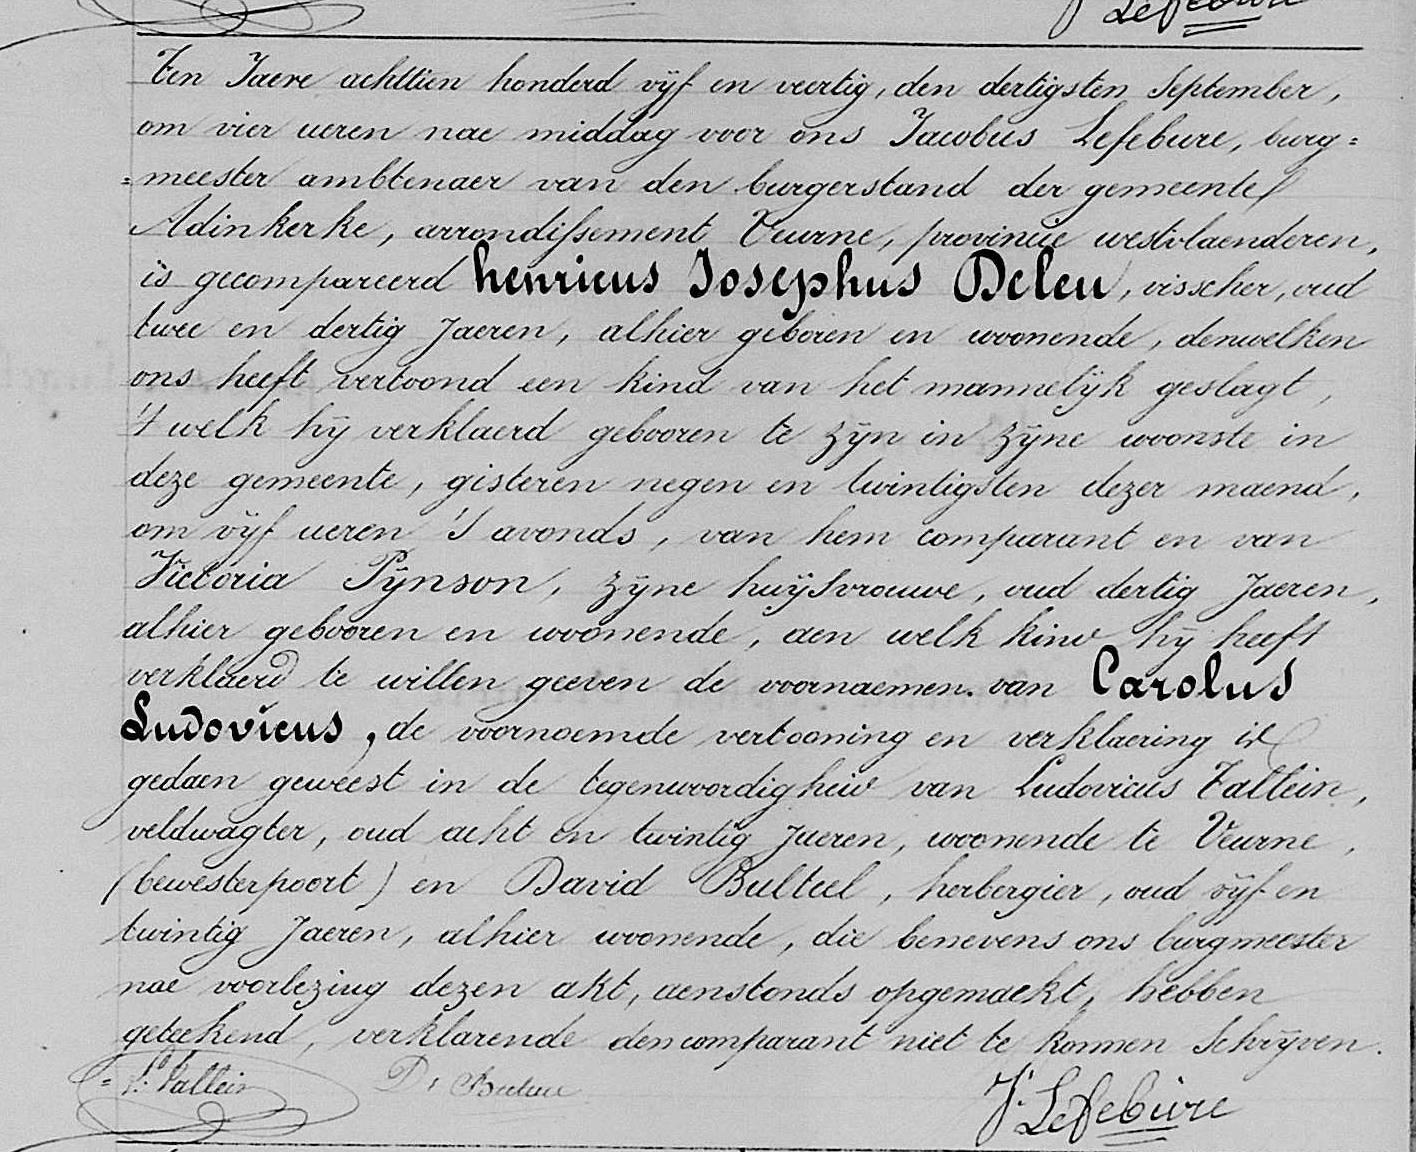 J Lefebure
Ten Jaere achttien honderd vÿf en veertig, den dertigsten September,
om vier ueren nae middag voor ons Jacobus Lefebure, burg=
=meester ambtenaer van den burgerstand der gemeente
Adinkerke, arrondissement Veurne, provincie westvlaenderen,
is gecompareerd henricus Josephus Deleu, visscher, oud
twee en dertig Jaeren, alhier geboren en woonende, denwelken
ons heeft vertoond een kind van het mannelÿk geslagt,
't welk hÿ verklaerd gebooren te zÿn in zÿne woonste in
deze gemeente, gisteren negen en twintigsten dezer maend,
om vÿf ueren 's avonds, van hem comparant en van
Victoria Pÿnson, zÿne huÿsvrouwe, oud dertig Jaeren,
alhier gebooren en woonende, aen welk kind hÿ heeft
verklaerd te willen geeven de voornaemen van Carolus
Ludovicus, de voornoemde vertooning en verklaering is
gedaen geweest in de tegenwoordigheid van Ludovicus Tallein,
veldwagter, oud acht en twintig Jaeren, woonende te Veurne,
(bewesterpoort) en David Bulteel, herbergier, oud vÿf en
twintig Jaeren, alhier woonende, die benevens ons burgmeester
nae voorlezing dezen akt, aenstonds opgemaekt, hebben
geteekend, verklarende den comparant niet te konnen schrÿven.
L. Tallein D. J. Lefebure